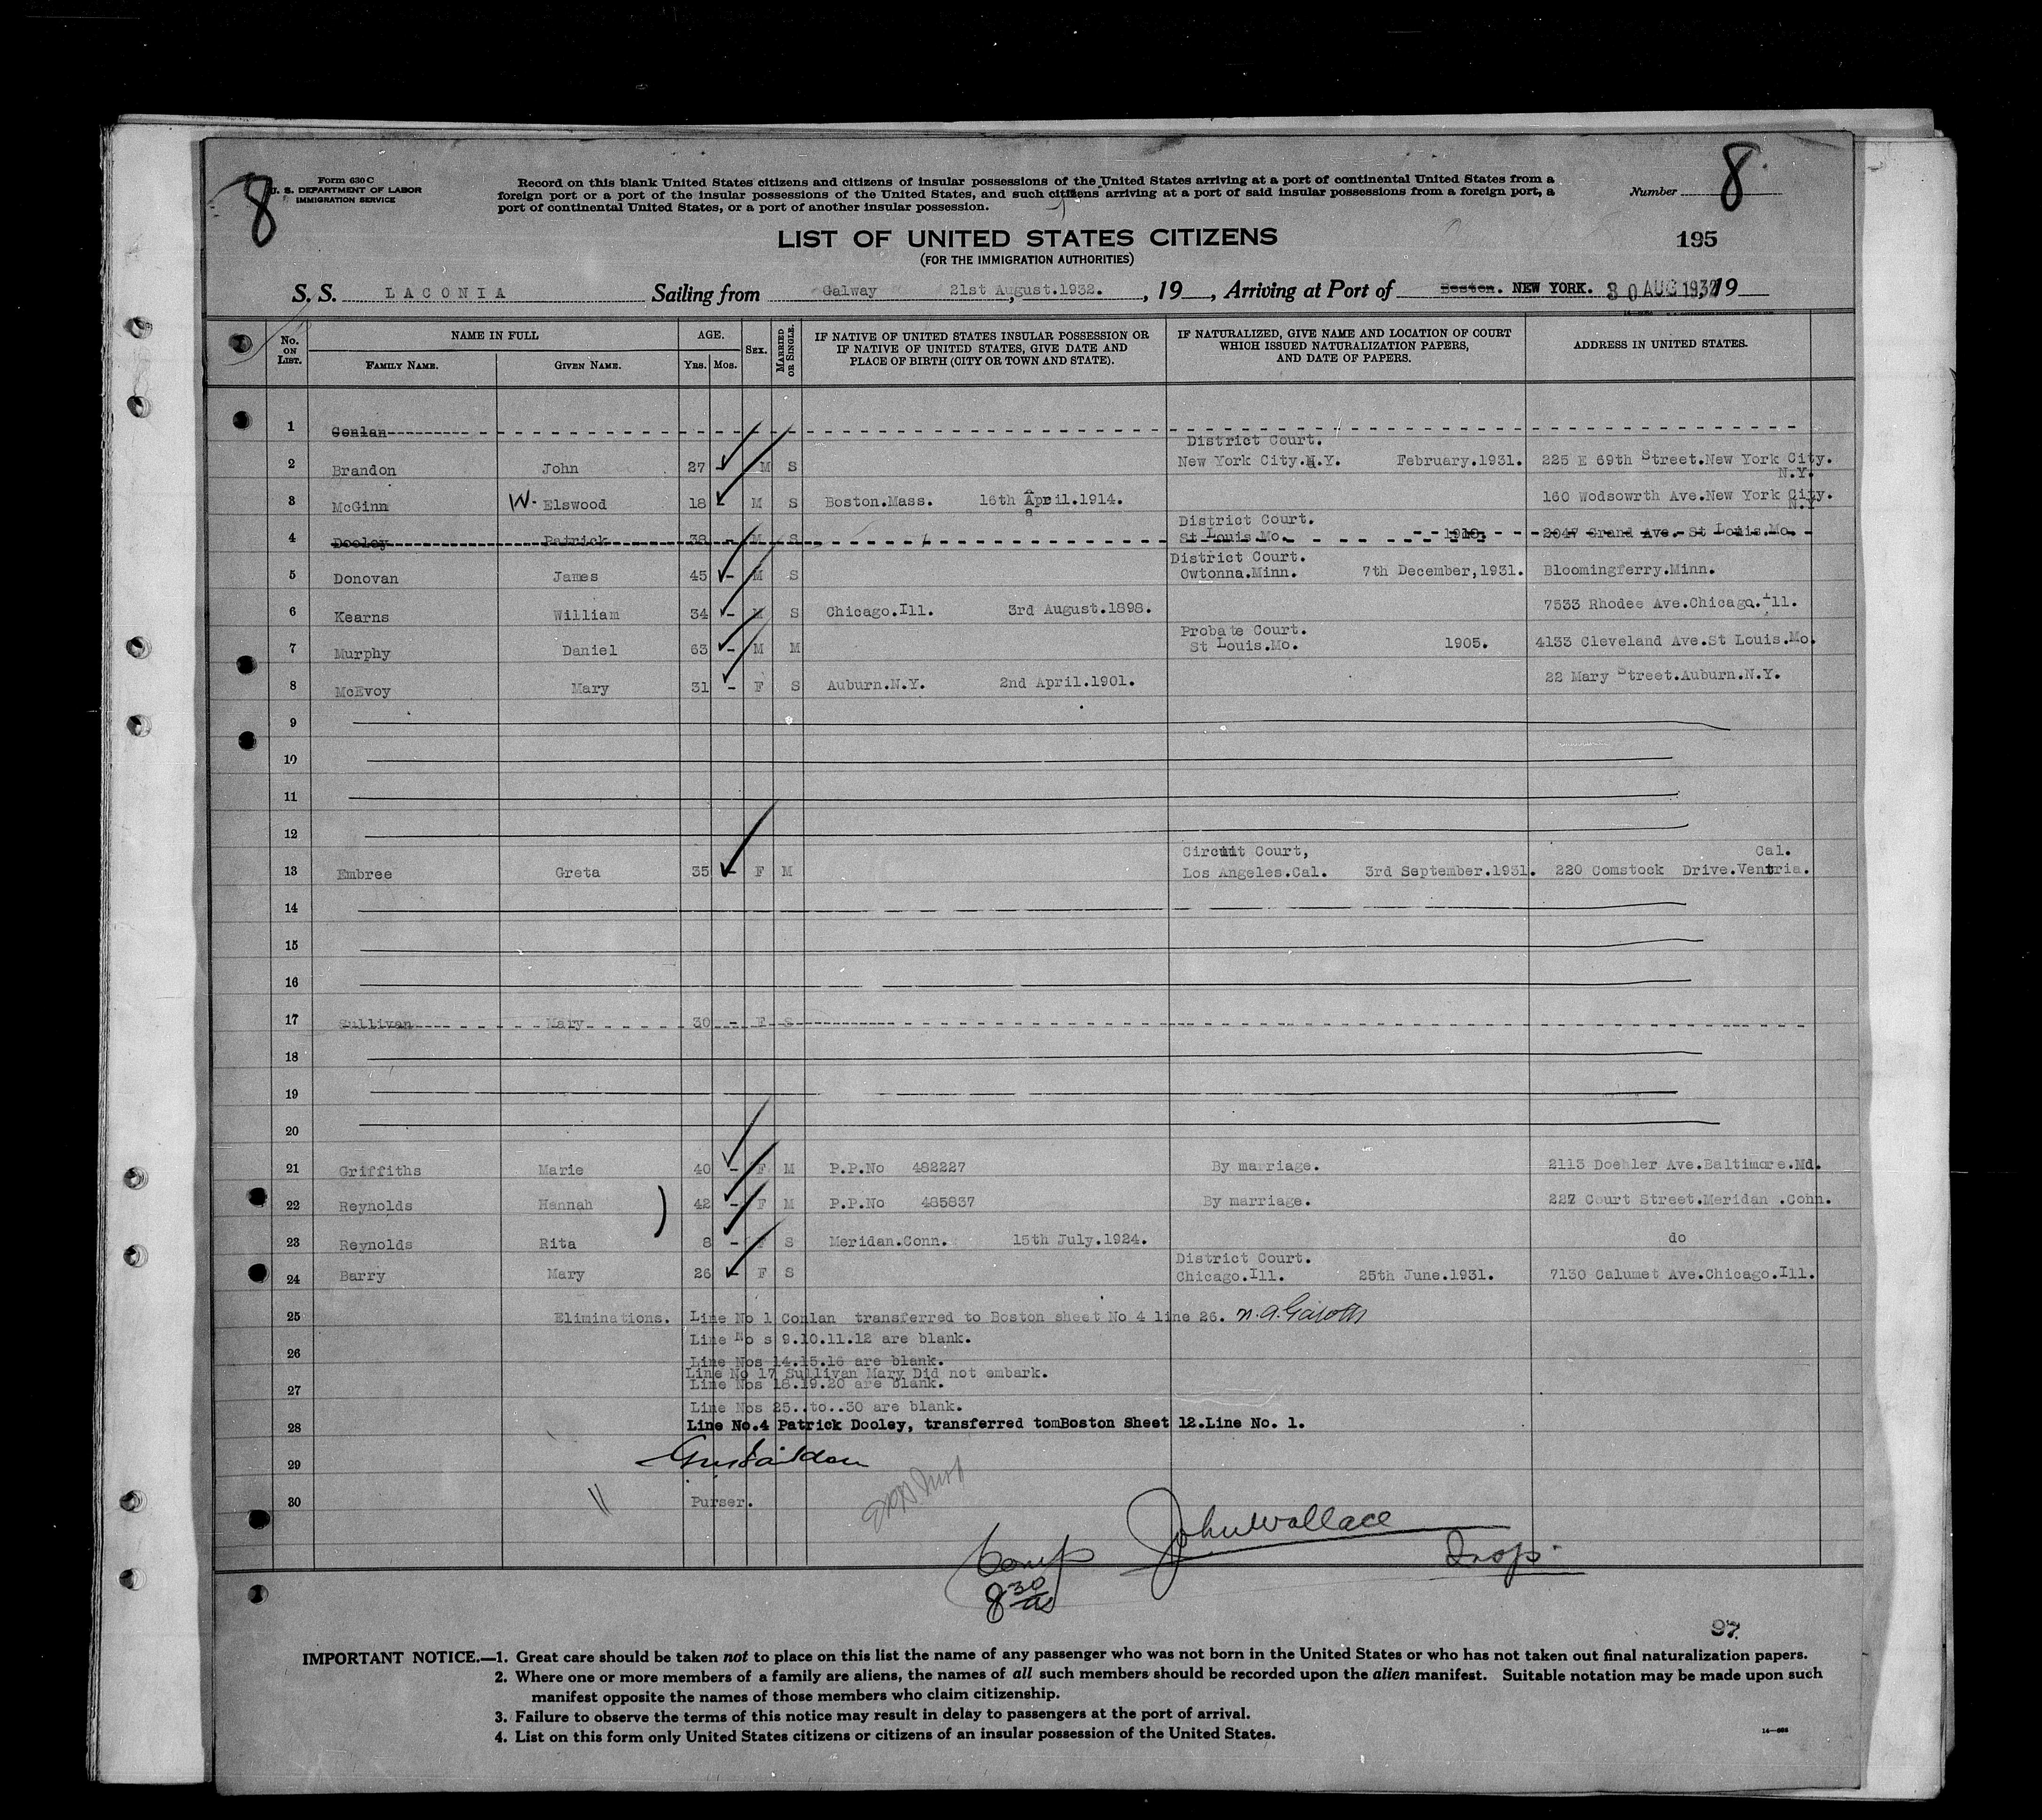 8
Form 630 C
U. S. DEPARTMENT OF LABOR
IMMIGRATION SERVICE
Record on this blank United States citizens and citizens of insular possessions of the United States arriving at a port of continental United States from a
foreign port or a port of the insular possessions of the United States, and such citizens arriving at a port of said insular possessions from a foreign port, a
port of continental United States, or a port of another insular possession.
Number 8
LIST OF UNITED STATES CITIZENS
(FOR THE IMMIGRATION AUTHORITIES)
195
S. S. LACONIA Sailing from Galway 21st August.1932. , 19 , Arriving at Port of Boston. NEW YORK. 30 AUG 1932 , 19
No. ON LIST. NAME IN FULL AGE. SEX. MARRIED OR SINGLE. IF NATIVE OF UNITED STATES INSULAR POSSESSION OR IF NATIVE OF UNITED STATES, GIVE DATE AND PLACE OF BIRTH (CITY OR TOWN AND STATE). IF NATURALIZED, GIVE NAME AND LOCATION OF COURT WHICH ISSUED NATURALIZATION PAPERS, AND DATE OF PAPERS. ADDRESS IN UNITED STATES.
FAMILY NAME. GIVEN NAME. YRS. MOS.
1 Conlan
2 Brandon John 27 - M S District Court. New York City.N.Y. February.1931. 225 E 69th Street.New York City. N.Y.
3 McGinn W. Elswood 18 M S Boston.Mass. 16th April.1914. 160 Wodsowrth Ave.New York City. N.Y
4 Dooley Patrick 38 - M S District Court. St Louis Mo. 1919. 2047 Grand Ave. St Louis.Mo.
5 Donovan James 45 - M S District Court. Owtonna.Minn. 7th December,1931. Bloomingferry.Minn.
6 Kearns William 34 - M S Chicago.Ill. 3rd August.1898. 7533 Rhodee Ave.Chicago.Ill.
7 Murphy Daniel 63 - M M Probate Court. St Louis.Mo. 1905. 4133 Cleveland Ave.St Louis.Mo.
8 McEvoy Mary 31 - F S Auburn.N.Y. 2nd April.1901. 22 Mary Street.Auburn.N.Y.
9
10
11
12
13 Embree Greta 35 - F M Circuit Court, Los Angeles.Cal. 3rd September.1931. 220 Comstock Drive.Ventria. Cal.
14
15
16
17 Sullivan Mary 30 - F S
18
19
20
21 Griffiths Marie 40 - F M P.P.No 482227 By marriage. 2113 Doehler Ave.Baltimore.Md.
22 Reynolds Hannah ) 42 - F M P.P.No 485837 By marriage. 227 Court Street.Meridan .Conn.
23 Reynolds Rita 8 - F S Meridan.Conn. 15th July.1924. do
24 Barry Mary 26 - F S District Court. Chicago.Ill. 25th June.1931. 7130 Calumet Ave.Chicago.Ill.
25 Eliminations. Line No 1 Conlan transferred to Boston sheet No 4 line 26.
Line No s 9.10.11.12 are blank.
26 Line Nos 14.15.16 are blank.
Line No 17 Sullivan Mary Did not embark.
27 Line Nos 18.19.20 are blank.
Line Nos 25..to..30 are blank.
28 Line No.4 Patrick Dooley, transferred tomBoston Sheet 12.Line No. 1.
29
30 Purser.
John Wallace
Insp.
Comp
8 30
97
IMPORTANT NOTICE.—1. Great care should be taken not to place on this list the name of any passenger who was not born in the United States or who has not taken out final naturalization papers.
2. Where one or more members of a family are aliens, the names of all such members should be recorded upon the alien manifest. Suitable notation may be made upon such
manifest opposite the names of those members who claim citizenship.
3. Failure to observe the terms of this notice may result in delay to passengers at the port of arrival.
4. List on this form only United States citizens or citizens of an insular possession of the United States.